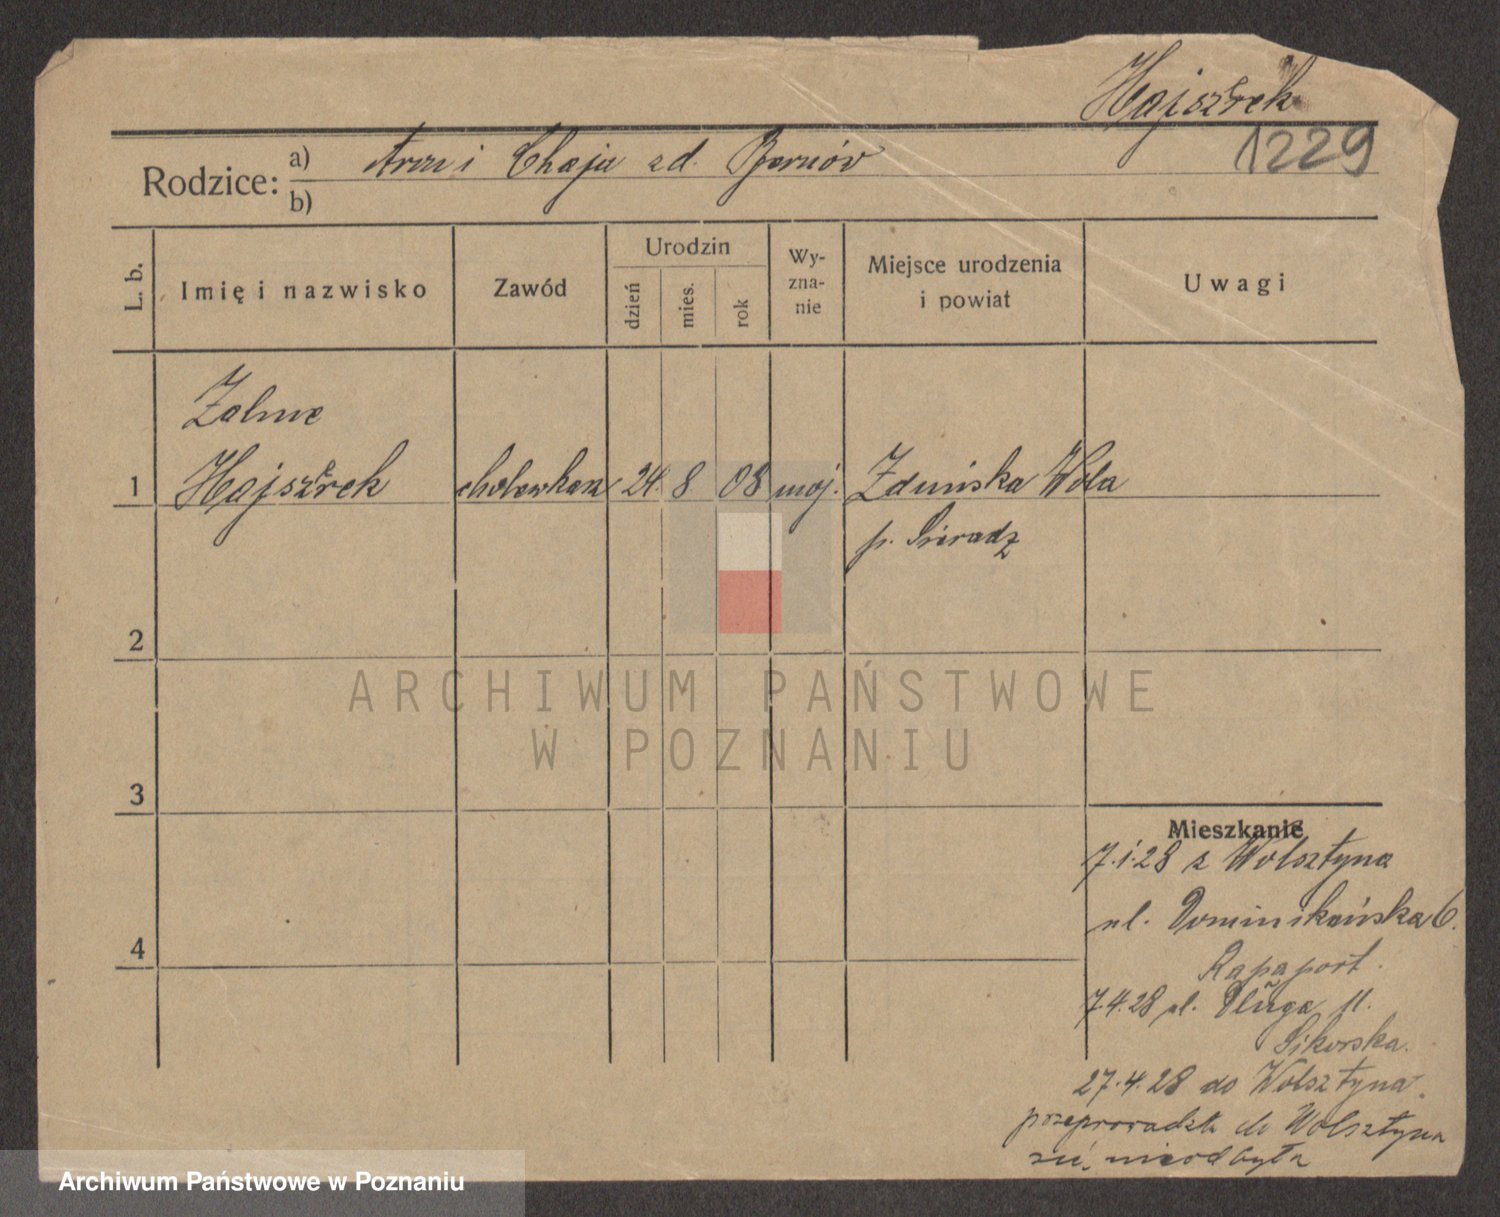 Hajszrek
1229
Rodzice:
a) i Chaja zd.
b)
L. b.
Imię i nazwisko
Zawód
Urodzin
dzień
mies.
rok
Wy-
zna-
nie
Miejsce urodzenia
i powiat
Uwagi
Zelme
1 Hajszrek cholewkarz 24. 8. 08 moj. Zduńska Wola
p. Sieradz
2
ARCHIWUM PAŃSTWOWE
W POZNANIU
3
Mieszkanie
7.1.28 z Wolsztyna
ul. Dominikańska 6.
Rapaport.
4
7.4.28 ul. Długa 11.
Sikorska.
27.4.28 do Wolsztyna.
do Wolsztyna
nieodbyła
Archiwum Państwowe w Poznaniu